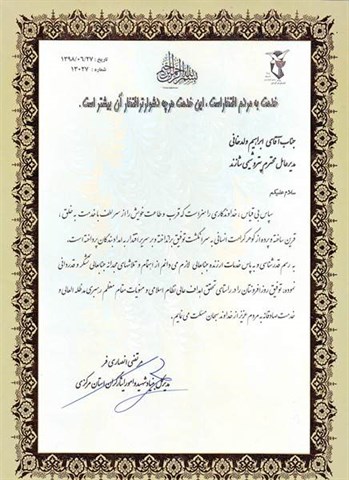 تاریخ: ۱۳۹۸/۰۶/۲۷
شماره: ۱۳۰۲۷
خدمت به مردم افتخار است ، این خدمت هرچه دشوارتر افتخار آن بیشتر است .
جناب آقای ابراهیم ولدخانی
مدیرعامل محترم پتروشیمی شازند
سلام علیکم
سپاس بی قیاس ، خداوندگاری را سزاست که قرب و طاعت خویش را از سر لطف با خدمت به خلق ،
قرین ساخته و پرده از گوهر کرامت انسانی به سرانگشت توفیق برانداخته و بر سریر اقتدار به
به رسم قدرشناسی و به پاس خدمات ارزنده جنابعالی لازم می دانم از اهتمام و تلاشهای مجدانه جنابعالی تشکر و قدردانی
نموده، توفیق روزافزونتان را در راستای تحقق اهداف عالی نظام اسلامی و منویات مقام معظم رهبری مدظله العالی و
خدمت صادقانه به مردم عزیز از خداوند سبحان مسئلت می نمایم .
مرتضی انصاری فر
مدیرکل بنیاد شهید و امور ایثارگران استان مرکزی